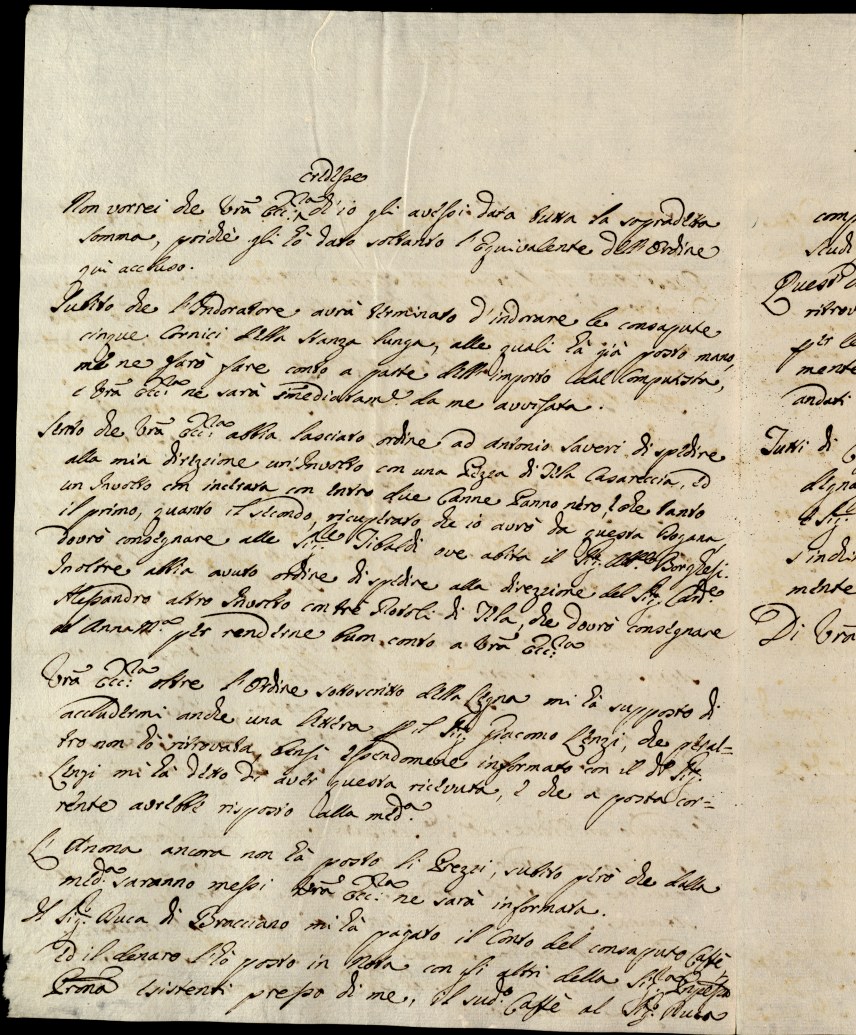 credesse
Non vorrei che Vrã Ecc.za ch'io gli avessi data tutta la sopradetta
somma, poiche gli hò dato soltanto l'Equivalente dell'Ordine
quì accluso.
Subito che l'Indoratore avrà terminato d'indorare le consapute
cinque Cornici della Stanza lunga, alle quali hà già posto mano,
me ne farò fare conto a parte dell'importo dal Computista,
e Vrã Ecc.za ne sarà immediatam.e da me avvisata.
Sento che Vrã Ecc.za abbia lasciato ordine ad Antonio Saveri di spedire
alla mia direzzione un'Involto con una Pezza di Tela Casareccia, ed
un Involto con incerata con entro due Canne Panno nero, che tanto
il primo, quanto il secondo, ricuperato che io avrò da questa Dogana
dovrò consegnare alle Sig.re Tibaldi ove abita il Sig. Borghesi.
Inoltre abbia avuto ordine di spedire alla direzzione del Sig. Card.e
Alessandro altro Involto con trè Rotoli di Tela, che dovrò consegnare
ad Anna M.a per renderne buon conto a Vrã Ecc.za
Vrã Ecc.za oltre l'Ordine sottoscritto della Legna mi hà supposto di
accludermi anche una lettera p il Sig. Giacomo Lenzi, che peral=
tro non hò ritrovata, bensì essendomene informato con il d.o Sig.
Lenzi mi hà detto di aver questa ricevuta, e che a posta cor=
rente avrebbe risposto alla med.a
L'Anona ancora non hà posto li Prezzi, subito però che dalla
med.a saranno messi Vrã Ecc.za ne sarà informata.
Il Sig. Duca di Bracciano mi hà pagato il Conto del consaputo Caffè
ed il denaro l'hò posto in Nota con gli altri della
esistenti presso di me, il sud.o Caffè al Sig. Duca
comp
studi
Quest
ritrov
per le
mente
andati
Tutti di
degna
e Sig.
s'inchi
mente
Di Vrã